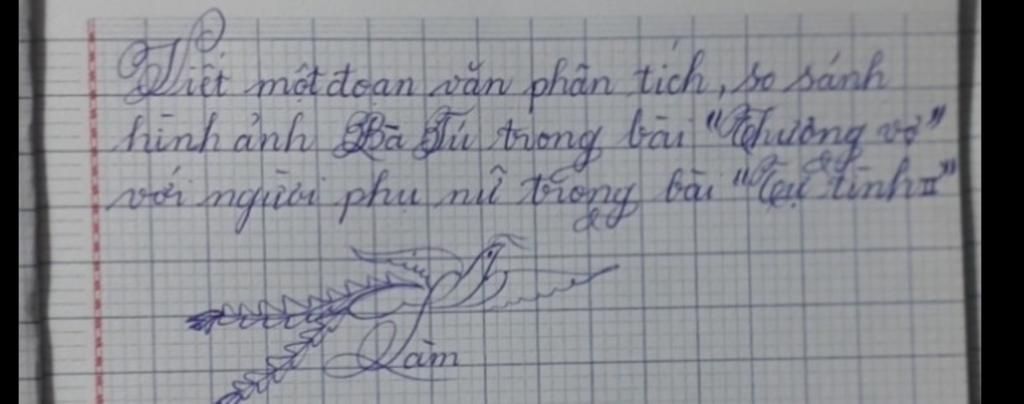 Viết một đoạn văn phân tích, so sánh
hình ảnh Bà Tú trong bài "Thương vợ"
với người phụ nữ trong bài "Tự tình II"
Làm